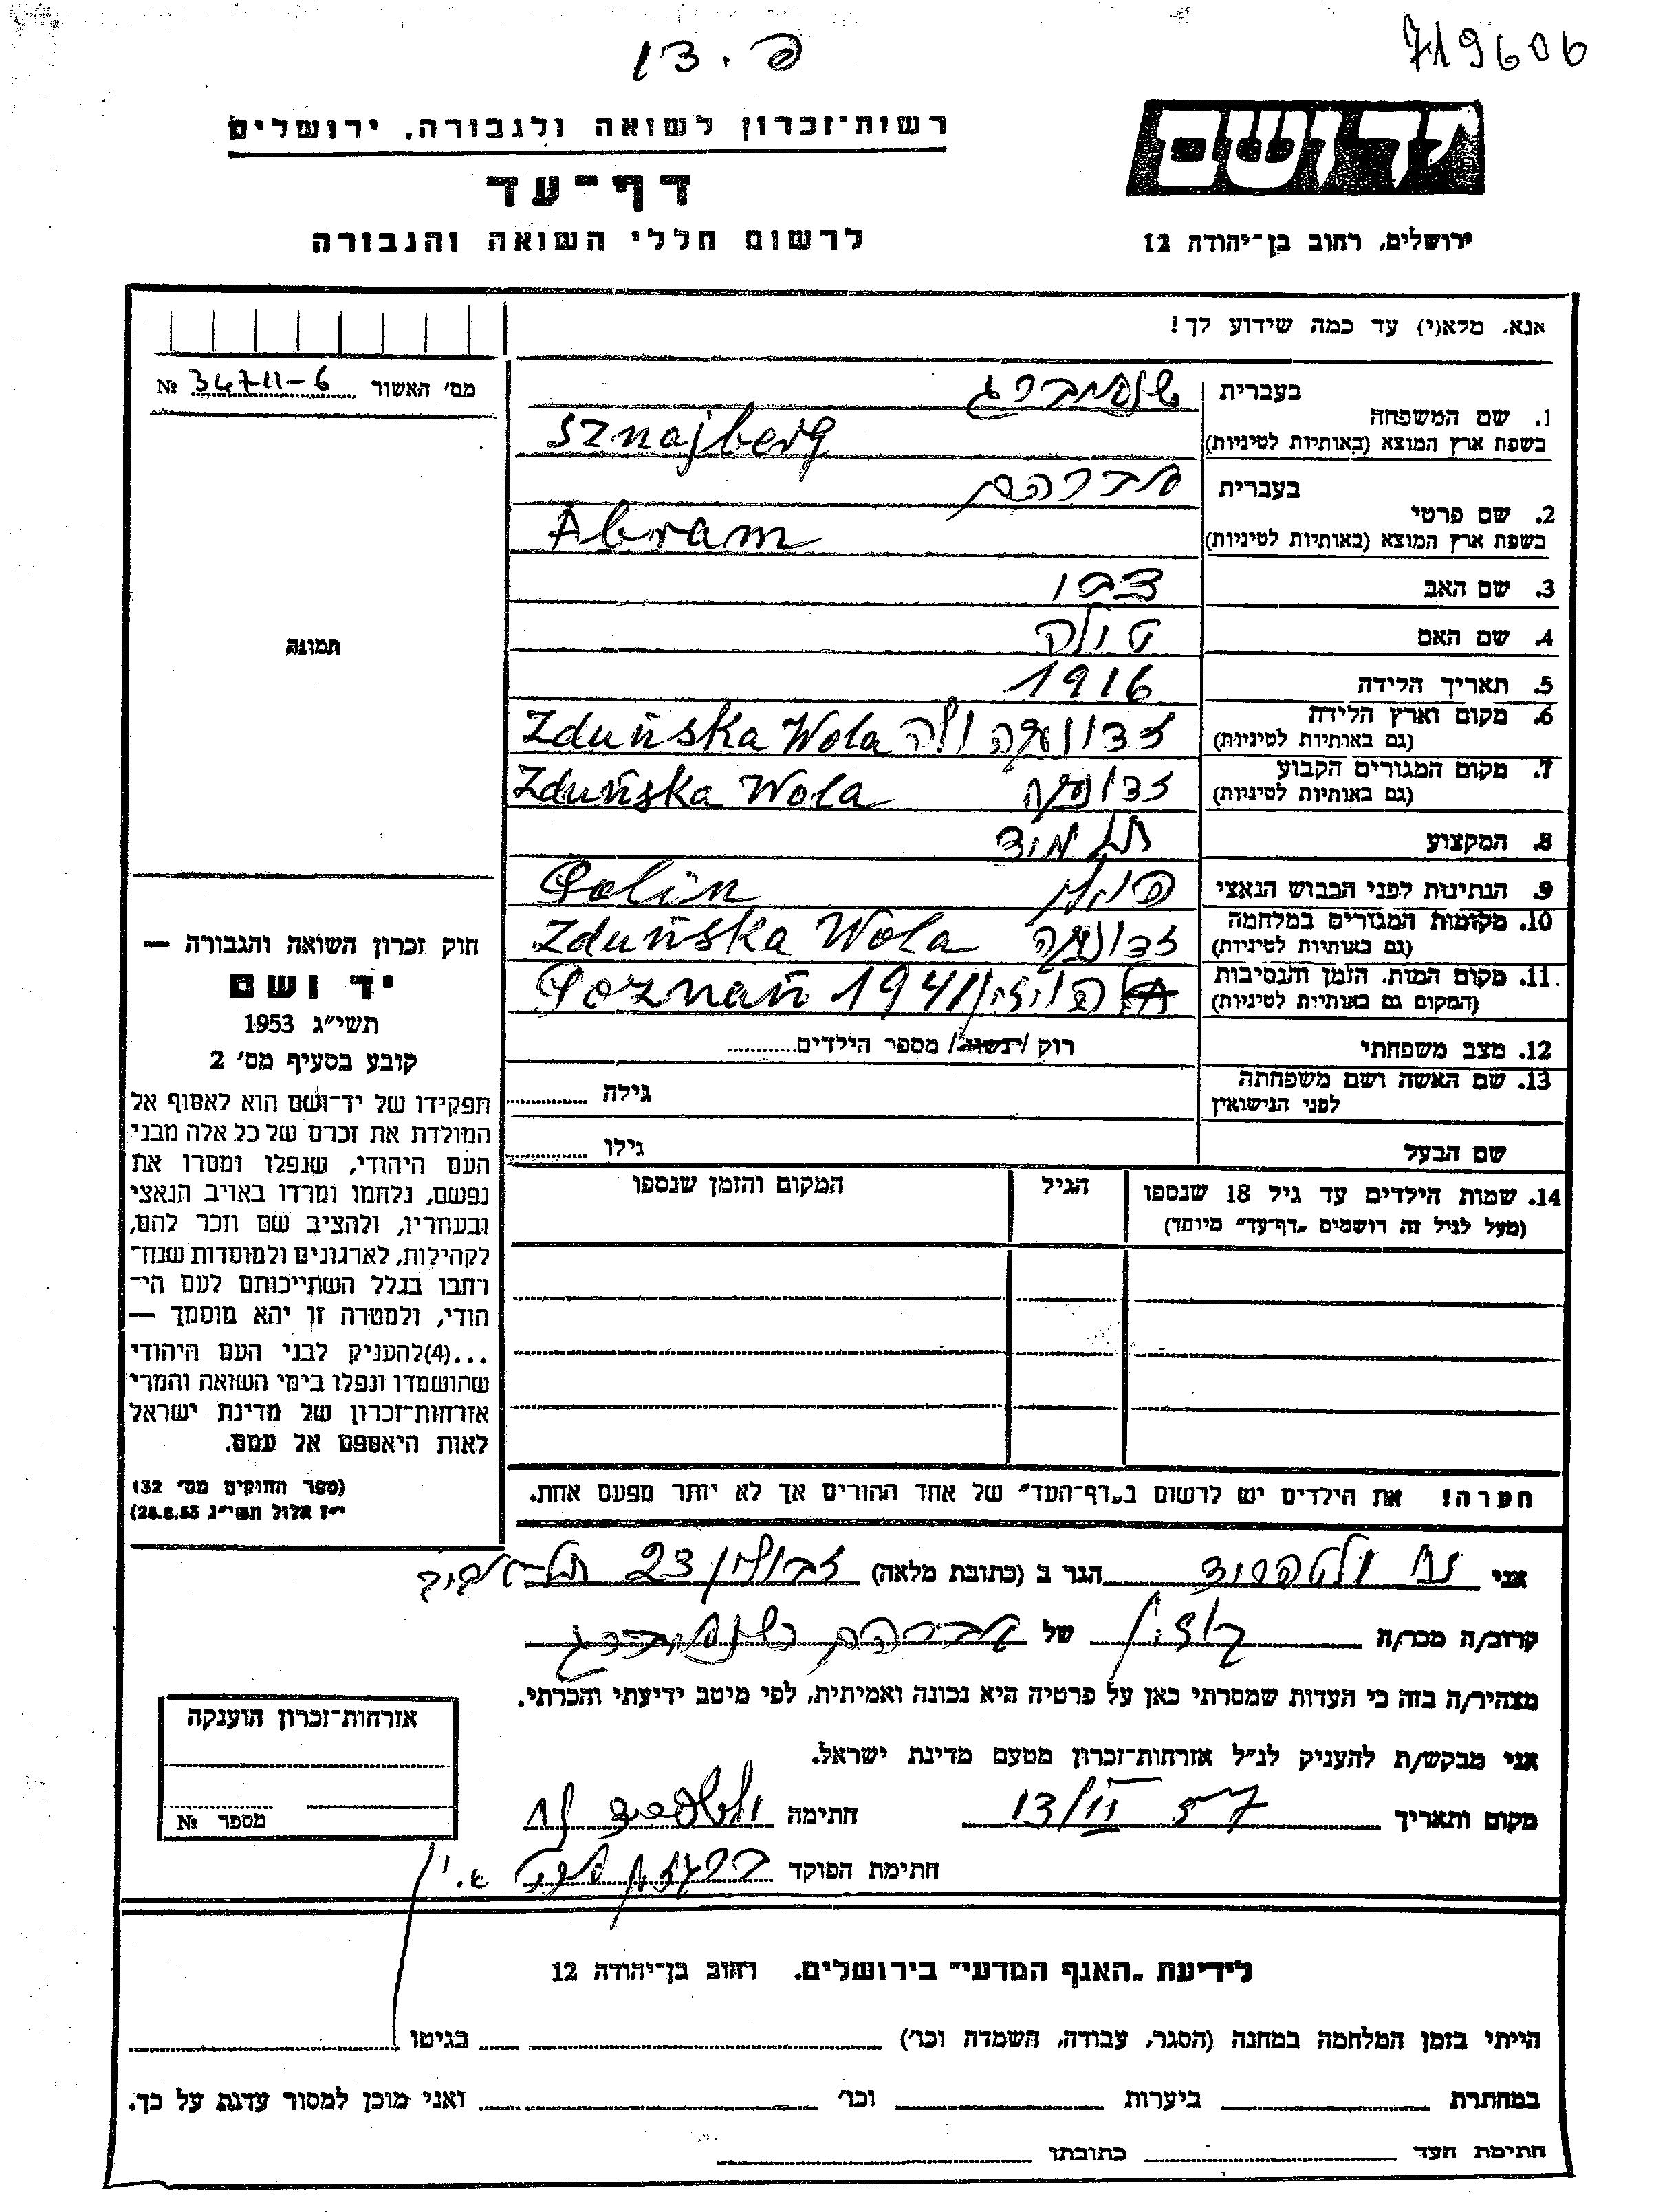 719606
פ. 13
רשות־זכרון לשואה ולגבורה, ירושלים
דף־עד
לרשום חללי השואה והגבורה
יד ושם
ירושלים, רחוב בן־יהודה 12
אנא, מלא(י) עד כמה שידוע לך!
מס׳ האשור № 34711-6
1. שם המשפחה בעברית שניידברג
בשפת ארץ המוצא (באותיות לטיניות) Sznajberg
2. שם פרטי בעברית אברהם
בשפת ארץ המוצא (באותיות לטיניות) Abram
3. שם האב
4. שם האם
5. תאריך הלידה 1916
6. מקום וארץ הלידה (גם באותיות לטיניות) Zduńska Wola
7. מקום המגורים הקבוע (גם באותיות לטיניות) Zduńska Wola
8. המקצוע
9. הנתינות לפני הכבוש הנאצי פולין Polin
10. מקומות המגורים במלחמה (גם באותיות לטיניות) Zduńska Wola
11. מקום המות, הזמן והנסיבות (המקום גם באותיות לטיניות) פוזן Poznań 1941
12. מצב משפחתי רוק /נשוי/ מספר הילדים
13. שם האשה ושם משפחתה לפני הנישואין גילה
שם הבעל גילו
14. שמות הילדים עד גיל 18 שנספו הגיל המקום והזמן שנספו
(מעל לגיל זה רושמים „דף־עד״ מיוחד)
תמונה
חוק זכרון השואה והגבורה —
יד ושם
תשי״ג 1953
קובע בסעיף מס׳ 2
תפקידו של יד־ושם הוא לאסוף אל
המולדת את זכרם של כל אלה מבני
העם היהודי, שנפלו ומסרו את
נפשם, נלחמו ומרדו באויב הנאצי
ובעוזריו, ולהציב שם וזכר להם,
לקהילות, לארגונים ולמוסדות שנח־
רחבו בגלל השתייכותם לעם הי־
הודי, ולמטרה זו יהא מוסמך —
...(4)להעניק לבני העם היהודי
שהושמדו ונפלו בימי השואה והמרי
אזרחות־זכרון של מדינת ישראל
לאות היאספם אל עמם.
(ספר החוקים מס׳ 132
י״ז אלול תשי״ג 28.8.53)
הערה! את הילדים יש לרשום ב„דף־העד״ של אחד ההורים אך לא יותר מפעם אחת.
אני הגר ב (כתובת מלאה) זבולון 23 תל-אביב
קרוב/ה מכר/ה של אברהם
מצהיר/ה בזה כי העדות שמסרתי כאן על פרטיה היא נכונה ואמיתית, לפי מיטב ידיעתי והכרתי.
אני מבקש/ת להעניק לנ״ל אזרחות־זכרון מטעם מדינת ישראל.
מקום ותאריך חתימה
חתימת הפוקד
אזרחות־זכרון הוענקה
מספר №
לידיעת „האגף המדעי״ בירושלים. רחוב בן־יהודה 12
הייתי בזמן המלחמה במחנה (הסגר, עבודה, השמדה וכו׳) בגיטו
במחתרת ביערות וכו׳ ואני מוכן למסור עדות על כך.
חתימת העד כתובתו